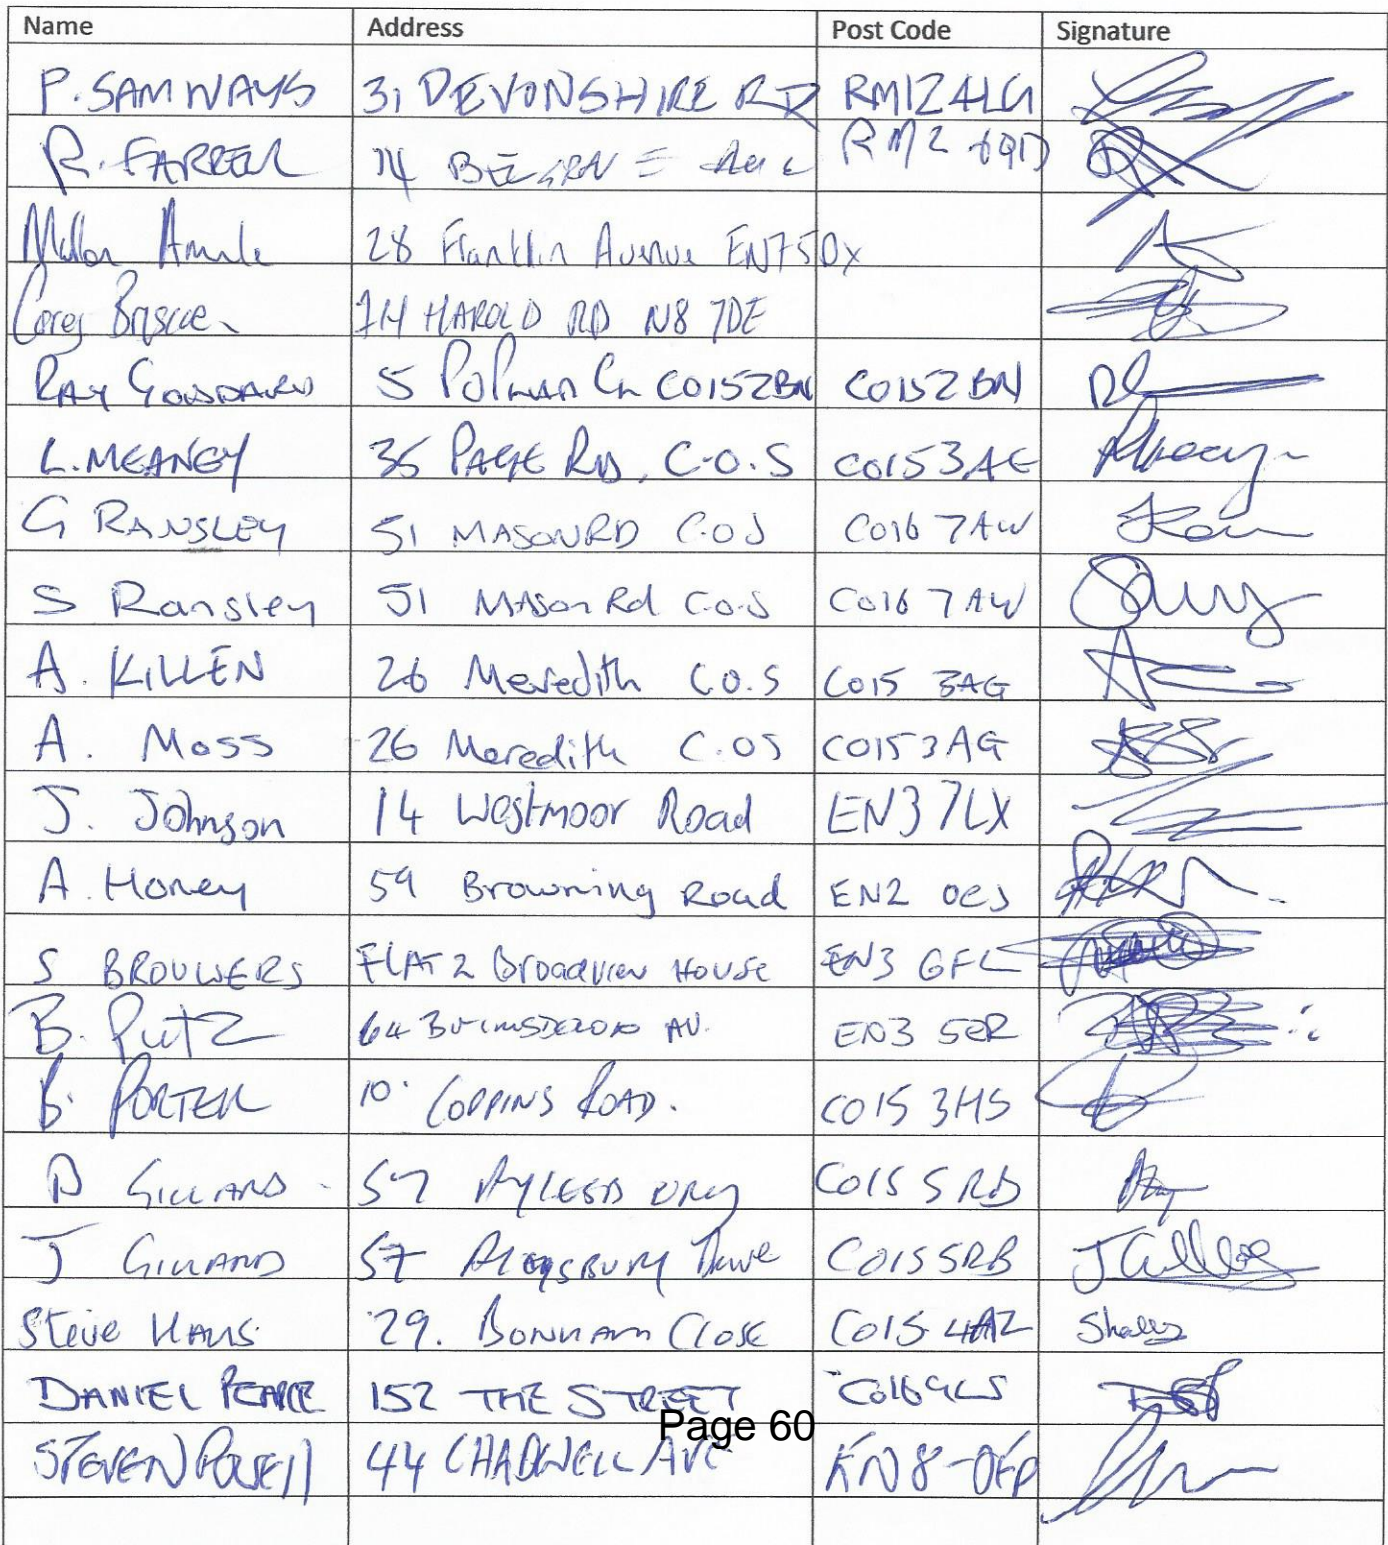 Name Address Post Code Signature
P. SAMWAYS 31 DEVONSHIRE RD RM12 4LG
R. FARRELL 14 RM2
28 Franklin Avenue EN7 5DX
Corey Briscoe 74 HAROLD RD N8 7DE
RAY GODDARD 5 CO152BN CO152BN
L. MEANEY 35 PAGE RD, C.O.S CO153AE
G RANSLEY 51 MASON RD C.O.S CO16 7AW
S Ransley 51 Mason Rd C.O.S CO16 7AW
A. KILLEN 26 Meredith C.O.S CO15 3AG
A. Moss 26 Meredith C.OS CO153AG
J. Johnson 14 Westmoor Road EN3 7LX
A. Honey 59 Browning Road EN2
S BROUWERS FLAT 2 Broadview HOUSE EN3 GFL
B. Putz 64 AV. EN3 5ER
B. PORTER 10 COPPINS ROAD. CO15 3HS
GILLARD 57 AYLESBURY CO15 5RB
J GILLARD 57 Drive CO15 5RB J Gillard
Steve 29. BONHAM CLOSE CO15 4AZ
DANIEL PEARCE 152 THE STREET CO169LS
Page 60
STEVEN 44 CHADWELL AVE